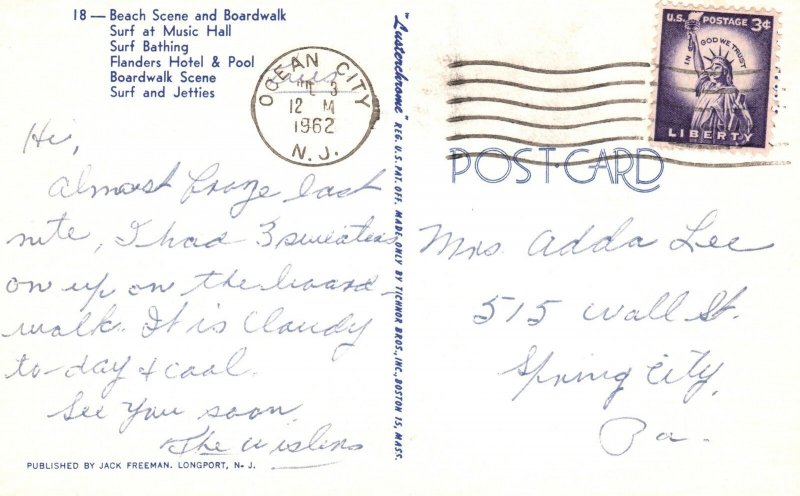 18 — Beach Scene and Boardwalk
Surf at Music Hall
Surf Bathing
Flanders Hotel & Pool
Boardwalk Scene
Surf and Jetties
OCEAN CITY
3
12 M
1962
N. J.
U.S. POSTAGE 3¢
IN GOD WE TRUST
LIBERTY
POST CARD
Hi,
Almost froze last
nite, I had 3 sweaters
on up on the board-
walk. It is Cloudy
to-day & cool.
See you soon.
The
"Lusterchrome" REG. U.S. PAT. OFF. MADE ONLY BY TICHNOR BROS., INC., BOSTON 15, MASS.
Mrs Adda Lee
515 Wall St.
Spring City,
Pa.
PUBLISHED BY JACK FREEMAN. LONGPORT, N. J.